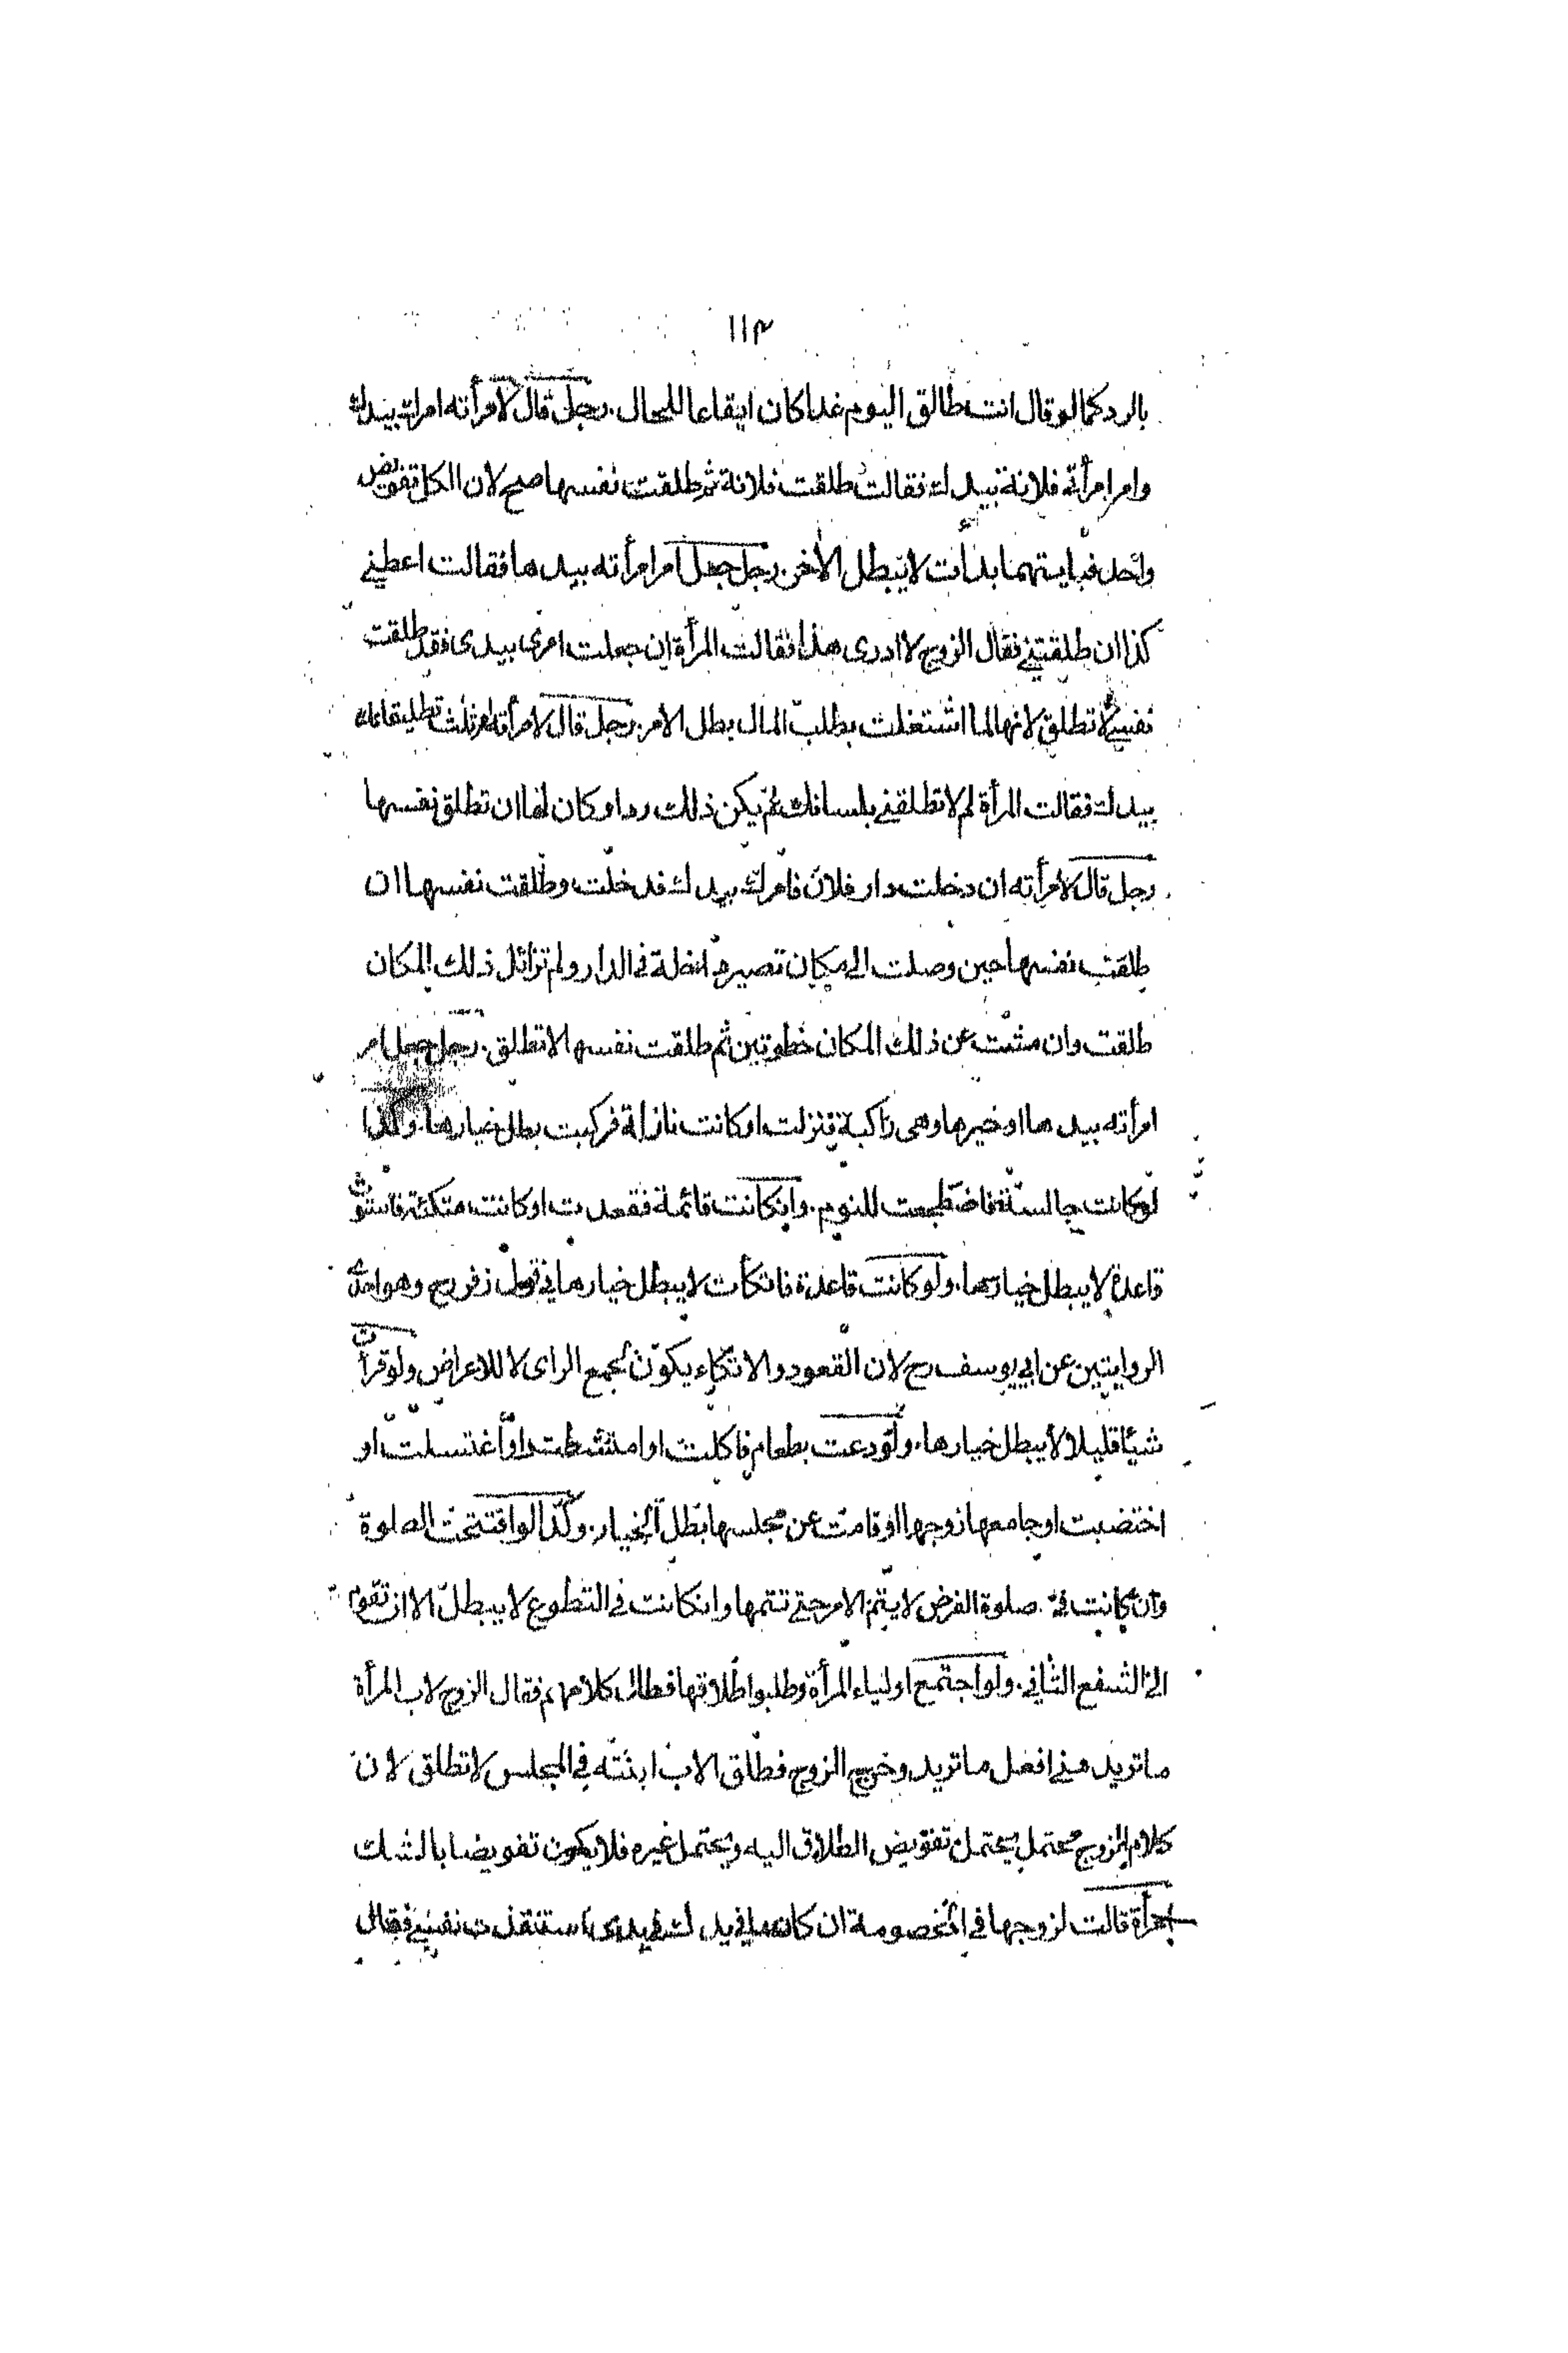 ١١٣
بالرد كما لو قال انت طالق اليوم غدا كان ايقاعا للحال. رجل قال لامرأته امرك بيدك
وامر امرأته فلانة بيدك فقالت طلقت فلانة ثم طلقت نفسها صح لان الكل تفويض
واحد فبايتهما بدأت لا يبطل الاخر. رجل جعل امر امرأته بيدها فقالت اعطني
كذا ان طلقتني فقال الزوج لا ادرى هذا فقالت المرأة ان جعلت امرى بيدى فقد طلقت
نفسي لا تطلق لانها لما اشتغلت بطلب المال بطل الامر. رجل قال لامرأته امر ثلث تطليقاتك
بيدك فقالت المرأة لم لا تطلقني بلسانك لم يكن ذلك ردا وكان لها ان تطلق نفسها
رجل قال لامرأته ان دخلت دار فلان فامرك بيدك فدخلت وطلقت نفسها ان
طلقت نفسها حين وصلت الى مكان تصير داخلة في الدار ولم تزائل ذلك المكان
طلقت وان مشت عن ذلك المكان خطوتين ثم طلقت نفسها لا تطلق. رجل جعل امر
امرأته بيدها او خيرها وهى راكبة فنزلت او كانت نازلة فركبت بطل خيارها. وكذا
لو كانت جالسة فاضطجعت للنوم. وانكانت قائمة فقعدت او كانت متكئة فاستوت
قاعدة لا يبطل خيارها. ولو كانت قاعدة فاتكأت لا يبطل خيارها في قول زفر رح وهو احدى
الروايتين عن ابي يوسف رح لان القعود والاتكاء يكون لجمع الراى لا للاعراض ولو قرأت
شيئا قليلا لا يبطل خيارها. ولو دعت بطعام فاكلت او امتشطت او اغتسلت او
اختضبت او جامعها زوجها او قامت عن مجلسها بطل الخيار. وكذا لو افتتحت الصلوة
وان كانت في صلوة الفرض لا يتم الامر حتى تتمها وانكانت في التطوع لا يبطل الا ان تقوم
الى الشفع الثاني. ولو اجتمع اولياء المرأة وطلبوا طلاقها فطال كلامهم فقال الزوج لاب المرأة
ما تريد مني افعل ما تريد وخرج الزوج فطلق الاب ابنته في المجلس لا تطلق لان
كلام الزوج محتمل يحتمل تفويض الطلاق اليه ويحتمل غيره فلا يكون تفويضا بالشك
امرأة قالت لزوجها في الخصومة ان كان ما في يدك في يدى استنقذت نفسي فقال